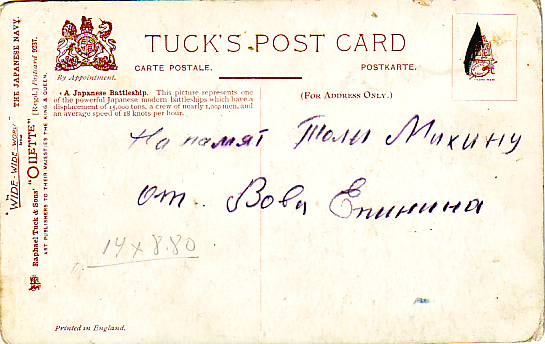 TUCK'S POST CARD
CARTE POSTALE.
POSTKARTE.
By Appointment.
(FOR ADDRESS ONLY.)
A Japanese Battleship. This picture represents one
of the powerful Japanese modern battleships which have a
displacement of 15,000 tons, a crew of nearly 1,000 men, and
an average speed of 18 knots per hour.
На памят Толи Михину
От Вови Епинина
14 x 8.80
Printed in England.
"WIDE-WIDE-WORLD" THE JAPANESE NAVY.
Raphael Tuck & Sons' "OILETTE" [Regd.] Postcard 9237.
ART PUBLISHERS TO THEIR MAJESTIES THE KING & QUEEN.